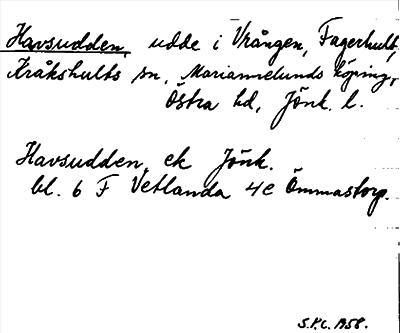 Havsudden, udde i Vrången, Fagerhult,
Kråkshults sn, Mariannelunds köping,
Östra hd, Jönk. l.
Havsudden, ek Jönk.
bl. 6 F Vetlanda 4e Ömmastorp.
S.P.C. 1958.